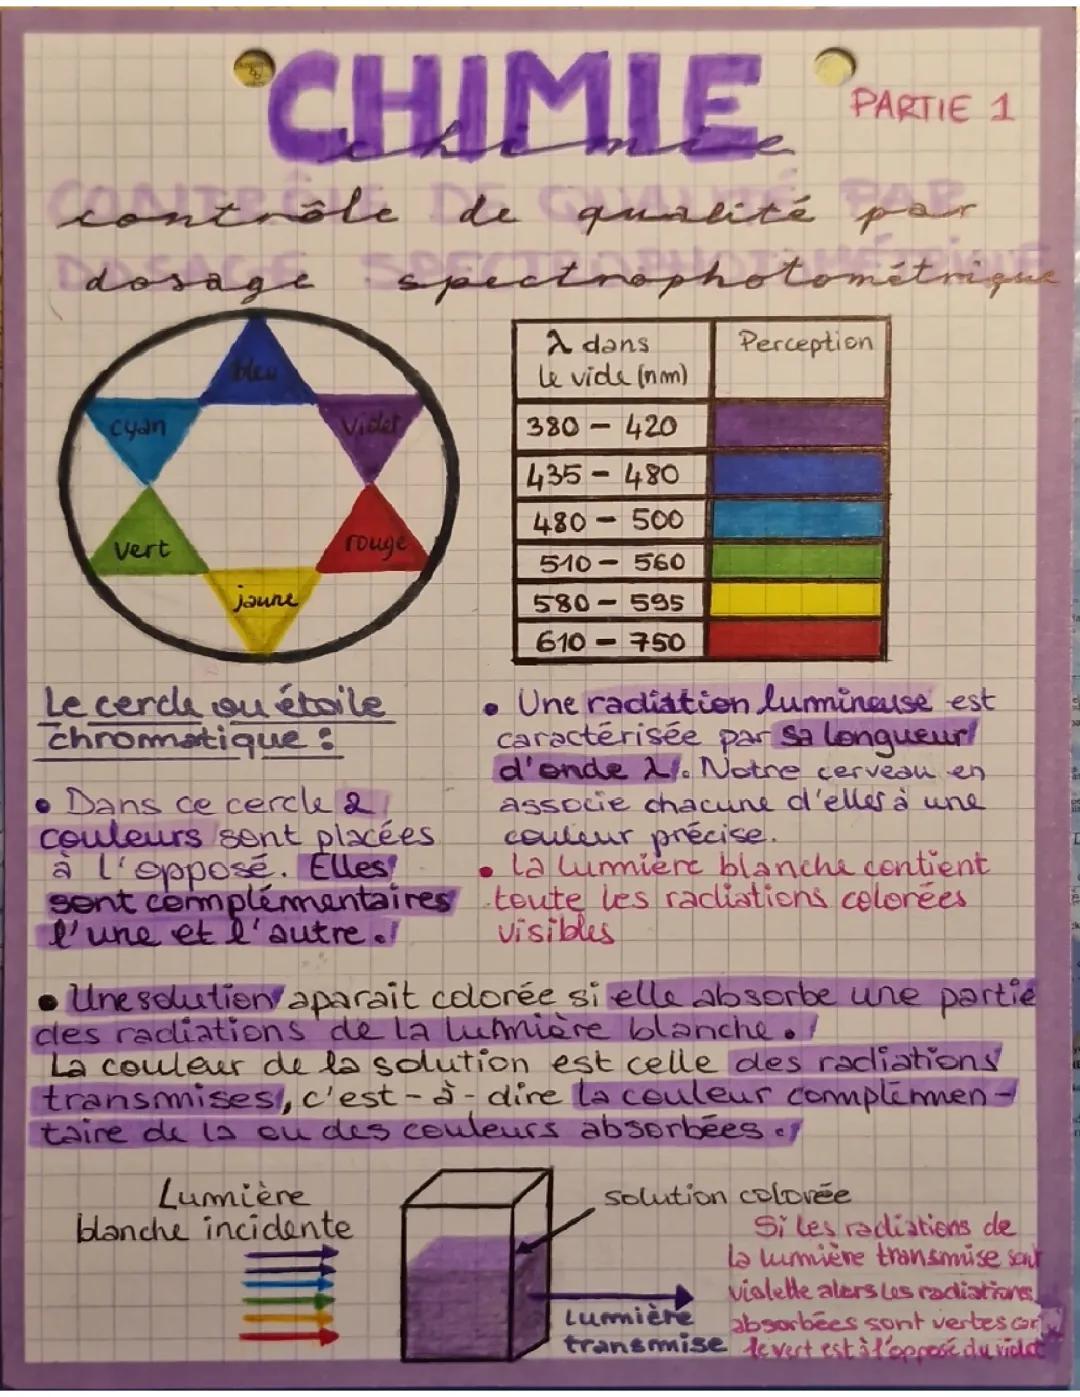 CHIMIE
chimie
PARTIE 1
CONTRÔLE DE QUALITÉ PAR
contrôle de qualité par
DOSAGE SPECTROPHOTOMÉTRIQUE
dosage spectrophotométrique
bleu
cyan
violet
vert
rouge
jaune
λ dans
le vide (nm)
Perception
380 - 420
435 - 480
480 - 500
510 - 560
580 - 595
610 - 750
Le cercle ou étoile
chromatique :
• Dans ce cercle 2
couleurs sont placées
à l'opposé. Elles
sont complémentaires
l'une et l'autre.
• Une radiation lumineuse est
caractérisée par sa longueur
d'onde λ. Notre cerveau en
associe chacune d'elles à une
couleur précise.
• La lumière blanche contient
toute les radiations colorées
visibles
• Une solution aparait colorée si elle absorbe une partie
des radiations de la lumière blanche.
La couleur de la solution est celle des radiations
transmises, c'est-à-dire la couleur complémen-
taire de la ou des couleurs absorbées.
Lumière
blanche incidente
solution colorée
Lumière
transmise
Si les radiations de
la lumière transmise sont
violette alors les radiations
absorbées sont vertes car
le vert est à l'opposé du violet